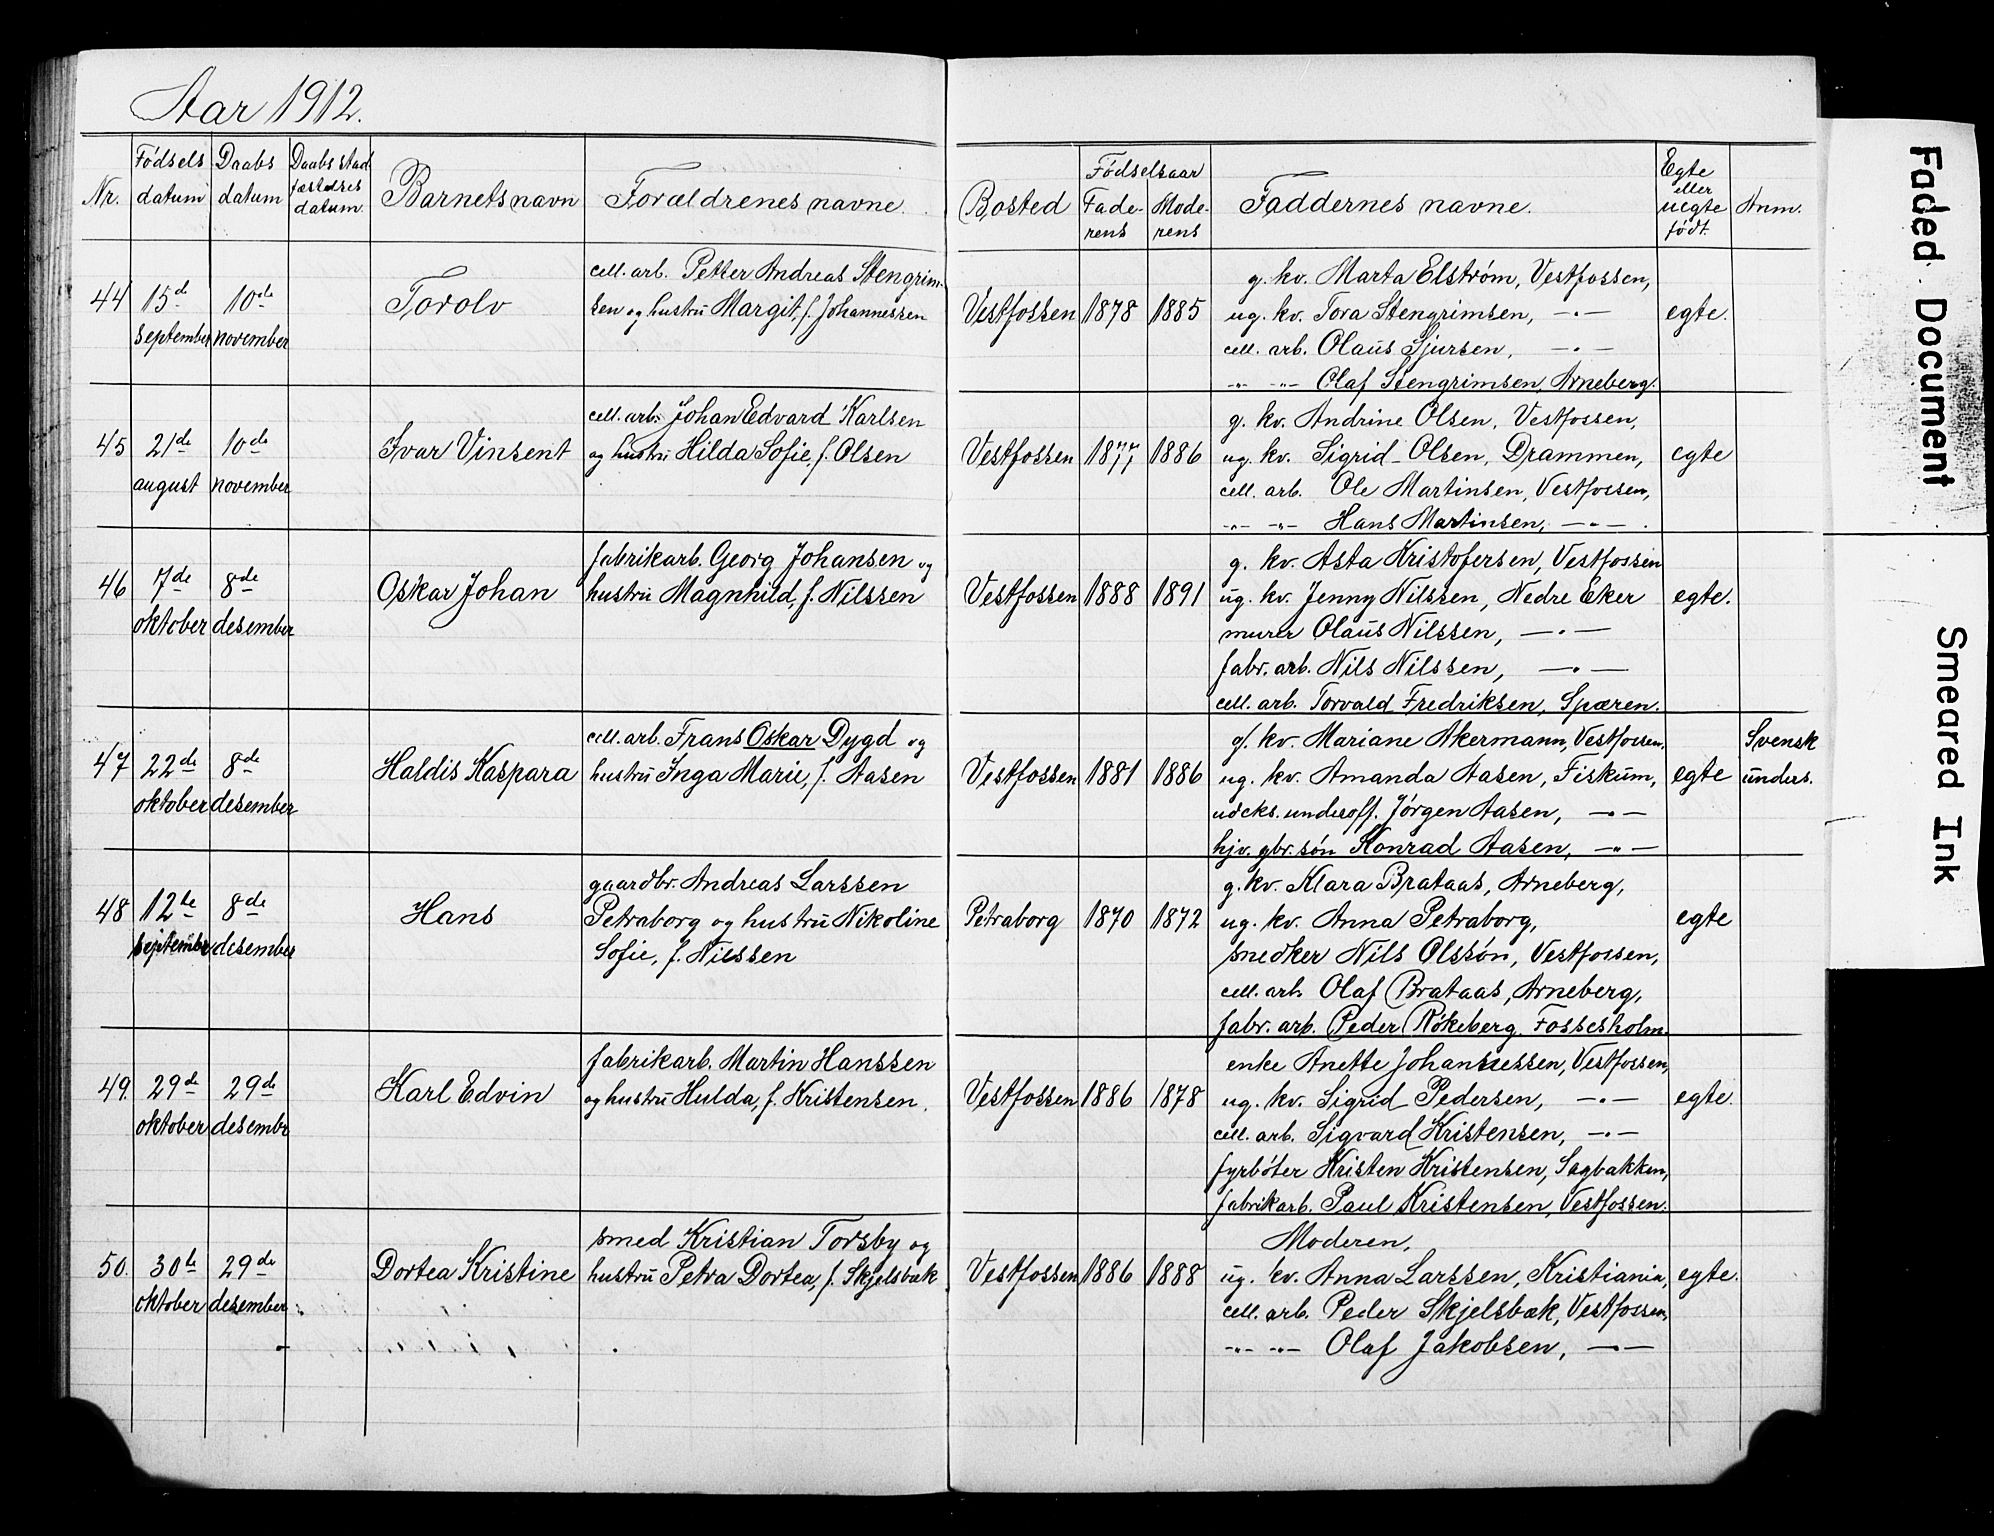 Aar 1912.
Nr.
Fødsels
datum
Daabs
datum
Daabs stad
fæstelses
datum.
Barnets navn
Forældrenes navne.
Bosted
Fødselsaar
Fade-
rens
Mode-
rens
Faddernes navne.
Egte
eller
uegte
født.
Anm.
44
15de
september
10de
november
Torolv
cell. arb. Petter Andreas Stengrim-
sen og hustru Margit, f. Johannessen
Vestfossen
1878
1885
g. kv. Marta Elstrøm, Vestfossen,
ug. kv. Tora Stengrimsen, —„—
cell. arb. Olaus Sjursen, —„—
-„- -„- Olaf Stengrimsen, Arneberg.
egte.
45
21de
august
10de
november
Ivar Vinsent
cell. arb. Johan Edvard Karlsen
og hustru Hilda Sofie, f. Olsen
Vestfossen
1877
1886
g. kv. Andrine Olsen, Vestfossen,
ug. kv. Sigrid Olsen, Drammen,
cell. arb. Ole Martinsen, Vestfossen,
-„- -„- Hans Martinsen, —„— .
egte
46
7de
oktober
8de
desember
Oskar Johan
fabrikarb. Georg Johansen og
hustru Magnhild, f. Nilssen
Vestfossen
1888
1891
g. kv. Asta Kristofersen, Vestfossen
ug. kv. Jenny Nilssen, Nedre Eker
murer Olaus Nilssen, —„—
fabr. arb. Nils Nilssen, —„—
cell. arb. Torvald Fredriksen, Spæren.
egte.
47
22de
oktober
8de
desember
Haldis Kaspara
cell. arb. Frans Oskar Dygd og
hustru Inga Marie, f. Aasen
Vestfossen
1881
1886
g. kv. Mariane Akermann, Vestfossen,
ug. kv. Amanda Aasen, Fiskum,
udeks. underoff. Jørgen Aasen, —„—
hjv. gbr. søn Konrad Aasen, —„—
egte
Svensk
unders.
48
12te
september
8de
desember
Hans
gaardbr. Andreas Larssen
Petraborg og hustru Nikoline
Sofie, f. Nilssen
Petraborg
1870
1872
g. kv. Klara Brataas, Arneberg,
ug. kv. Anna Petraborg,
snedker Nils Olssøn, Vestfossen,
cell. arb. Olaf Brataas, Arneberg,
fabr. arb. Peder Røkeberg, Fossesholm.
egte
49.
29de
oktober
29de
desembr
Karl Edvin
fabrikarb. Martin Hanssen
og hustru Hulda, f. Kristensen.
Vestfossen
1886
1878
enke Anette Johannessen, Vestfossen,
ug. kv. Sigrid Pedersen, —„—
cell. arb. Sigvard Kristensen, —„—
fyrbøter Kristen Kristensen, Sagbakken,
fabrikarb. Paul Kristensen, Vestfossen.
egte.
50.
30te
oktober
29de
desember
Dortea Kristine
smed Kristian Torsby og
hustru Petra Dortea, f. Skjelsbæk
Vestfossen
1886
1888
Moderen,
ug. kv. Anna Larssen, Kristiania,
cell. arb. Peder Skjelsbæk, Vestfossen,
-„- -„- Olaf Jakobsen, —„—
egte.
Faded Document
Smeared Ink